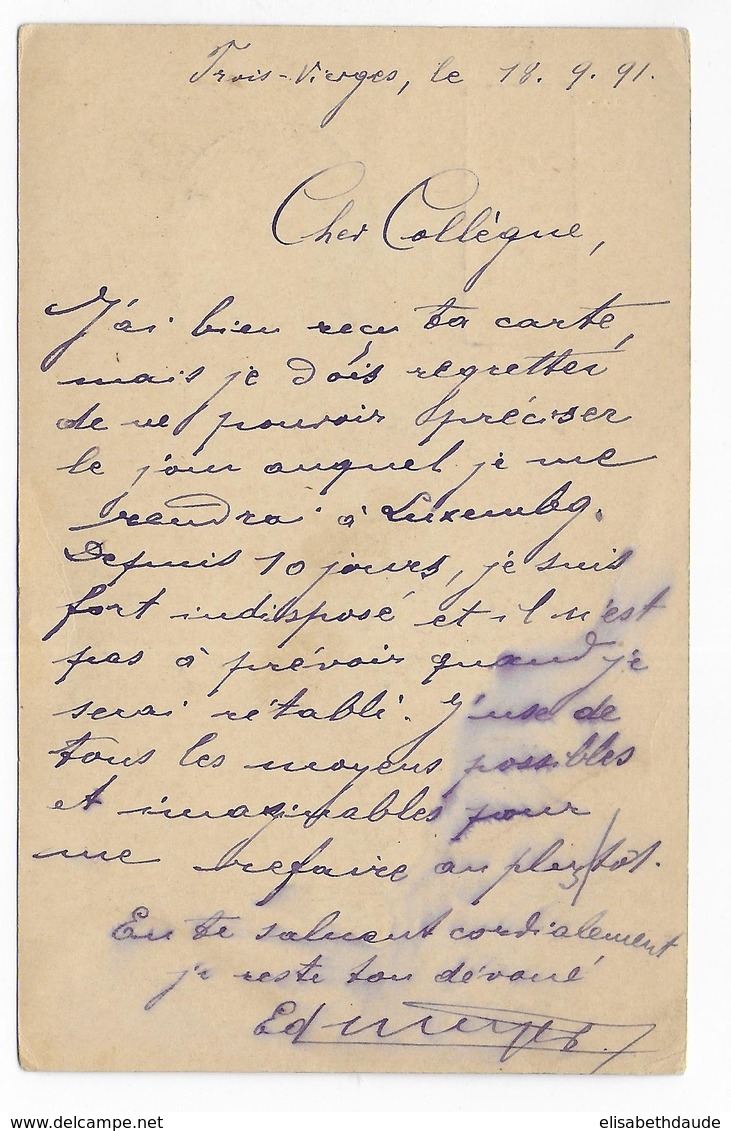 Trois-Vierges, le 18.9.91.
Cher Collègue,
J'ai bien reçu ta carte,
mais je dois regretter
de ne pouvoir préciser
le jour auquel je me
rendrai à Luxembg.
Depuis 10 jours, je suis
fort indisposé et il n'est
pas à prévoir quand je
serai rétabli. J'use de
tous les moyens possibles
et imaginables pour
me refaire au plus/tôt.
En te saluant cordialement
je reste ton dévoué
Ed
elisabethdaude